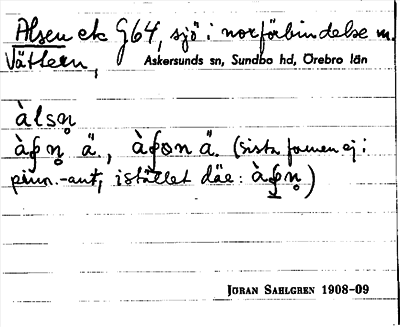 Alsen ek G64, sjö i norförbindelse m.
Vättern, Askersunds sn, Sundbo hd, Örebro län
àlsn̥
ä., ä. (sista formen ej i
prim.-aut, istället däe:
JÖRAN SAHLGREN 1908-09